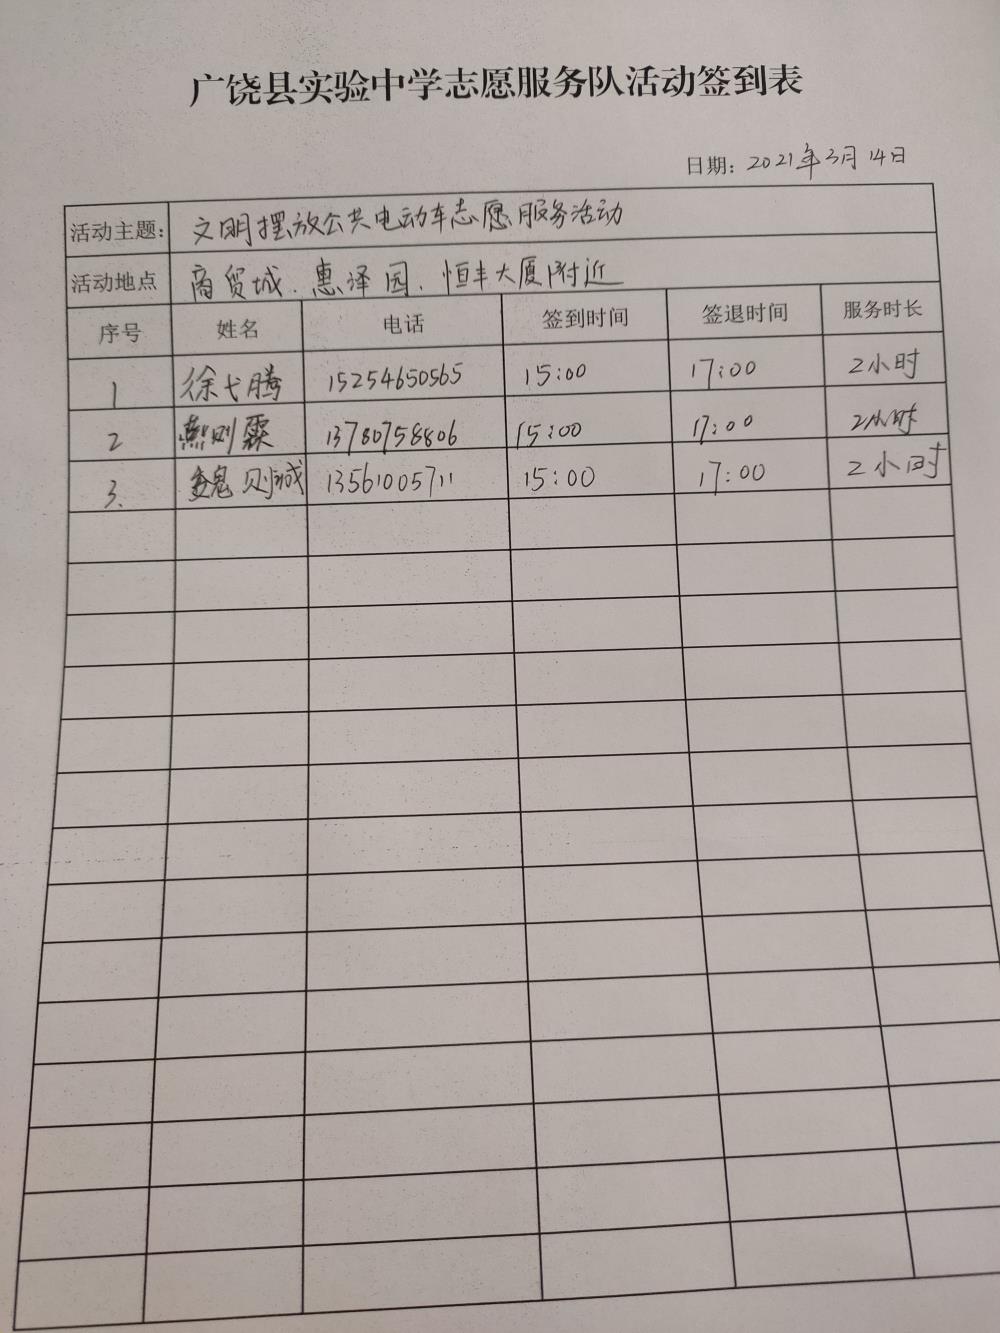 广饶县实验中学志愿服务队活动签到表
日期：2021年3月14日
活动主题： 文明摆放公共电动车志愿服务活动
活动地点 商贸城.惠泽园.恒丰大厦附近
序号 姓名 电话 签到时间 签退时间 服务时长
1 徐弋腾 15254650565 15:00 17:00 2小时
2 燕则霖 13780758806 15:00 17:00 2小时
3. 魏则城 13561005711 15:00 17:00 2小时